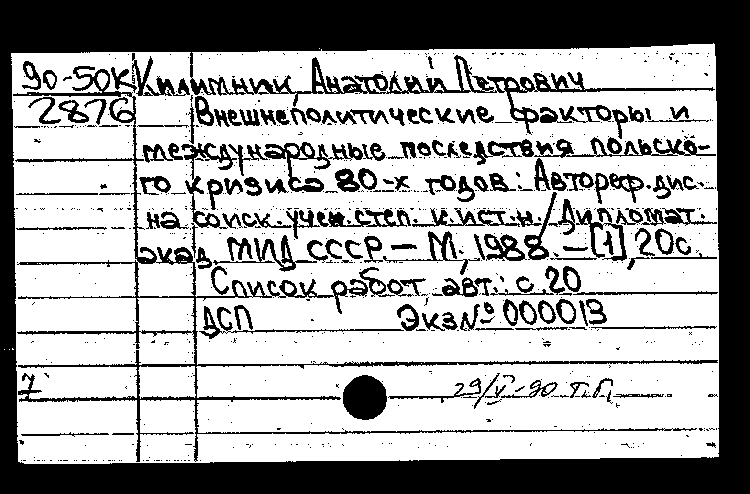 90-50К Килимник, Анатолий Петрович
2876 Внешнеполитические факторы и
международные последствия польско-
го кризиса 80-х годов: Автореф. дис.
на соиск. учен. степ. к. ист. н. / Дипломат.
акад. МИД СССР. – М., 1988. – [1], 20 с.
Список работ авт.: с. 20
ДСП Экз № 000013
7 29/V-90 Т.П.